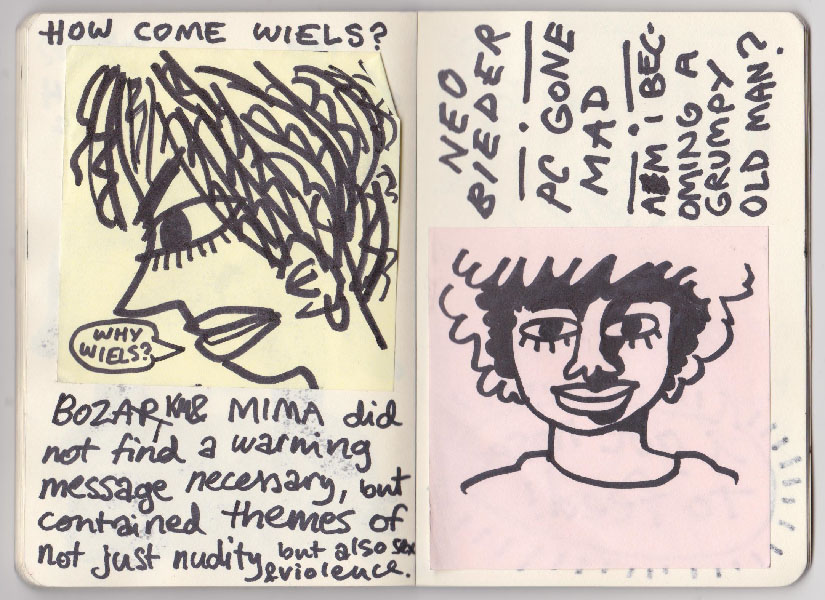 HOW COME WIELS?
WHY
WIELS?
BOZAR & MIMA did
not find a warning
message necessary, but
contained themes of
not just nudity but also sex
& violence.
NEO
BIEDER
PC GONE
MAD
AM I BEC-
OMING A
GRUMPY
OLD MAN?